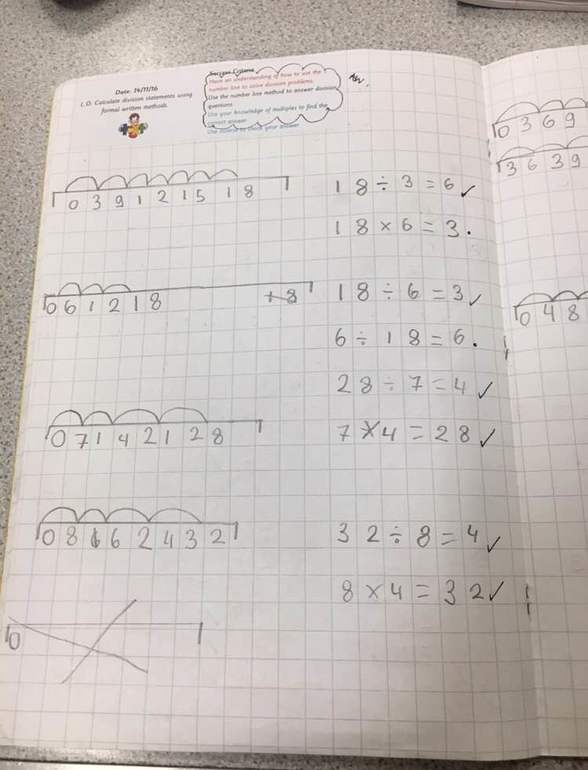 Date: 14/11/16
L.O. Calculate division statements using
formal written methods.
Success Criteria
Have an understanding of how to use the
number line to solve division problems.
Use the number line method to answer division
questions.
Use your knowledge of multiples to find the
correct answer
0 3 9 1 2 1 5 1 8
18 ÷ 3 = 6 ✓
18 × 6 = 3 .
0 6 1 2 1 8
18 ÷ 6 = 3 ✓
6 ÷ 18 = 6 .
28 ÷ 7 = 4 ✓
0 7 1 4 2 1 2 8
7 × 4 = 28 ✓
0 8 1 6 2 4 3 2
32 ÷ 8 = 4 ✓
8 × 4 = 32 ✓
0
0 3 6 9
3 6 3 9
0 4 8